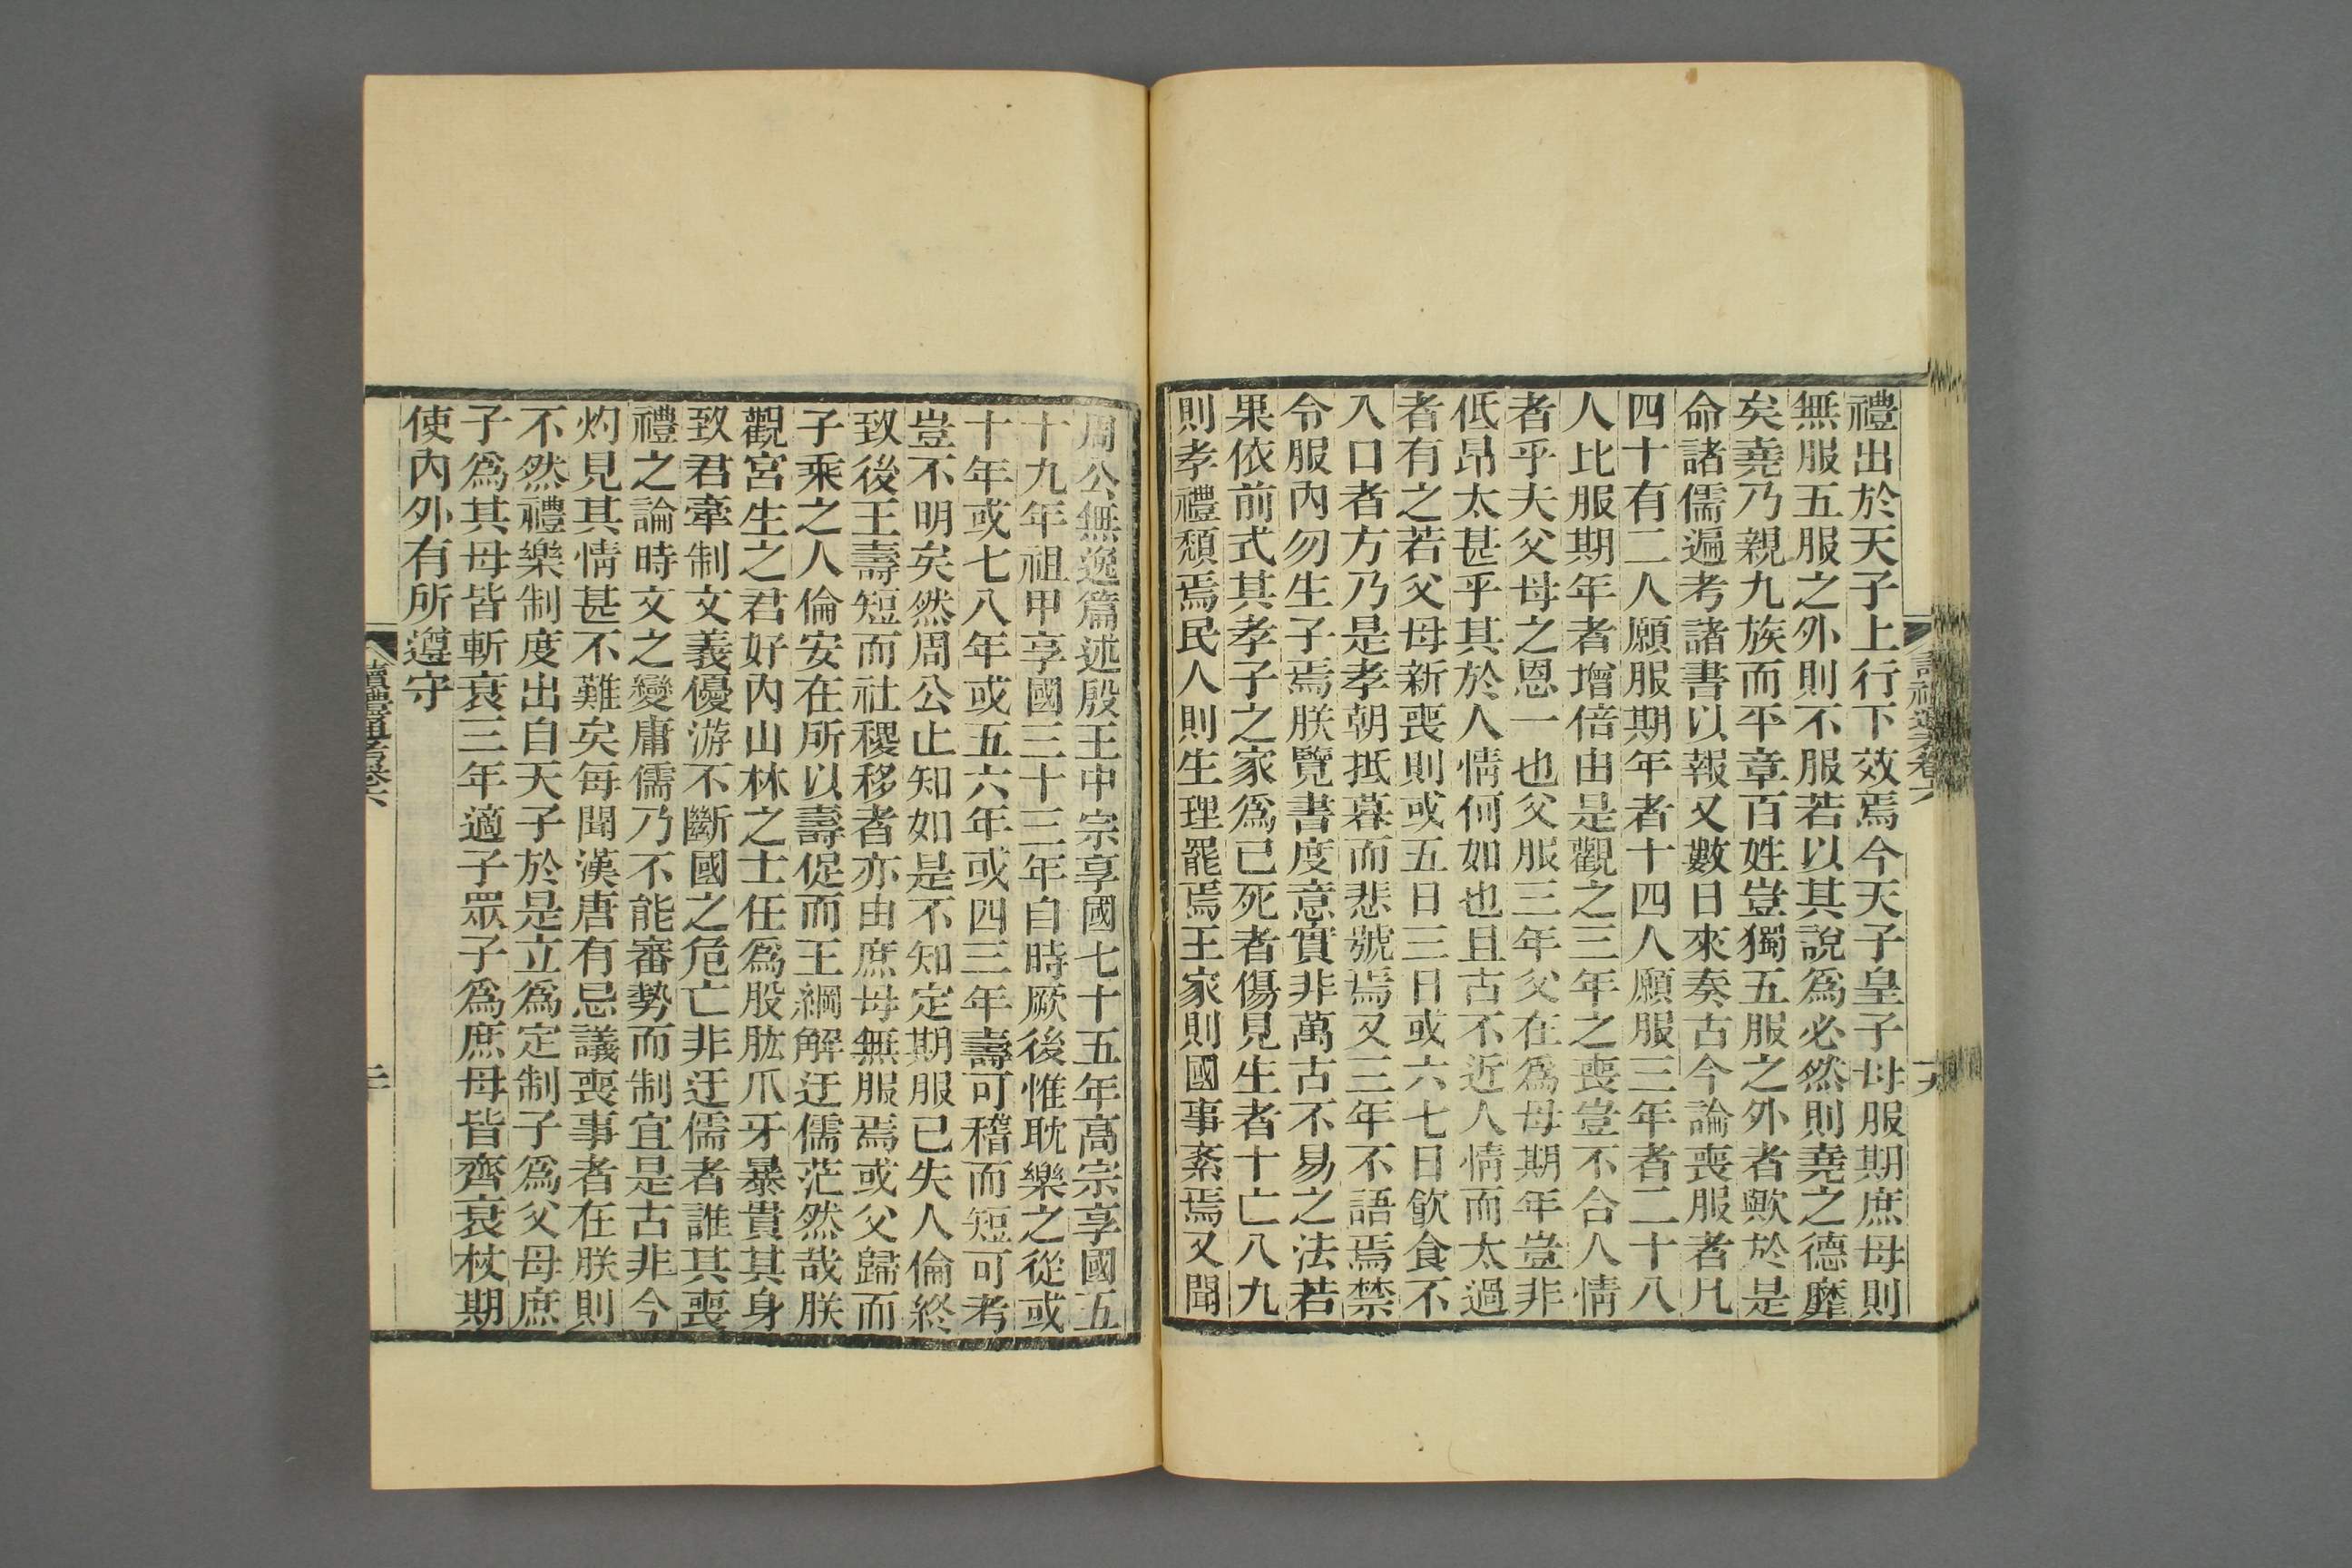 禮出於天子上行下效焉今天子皇子母服期庶母則
無服五服之外則不服若以其說爲必然則堯之德靡
矣堯乃親九族而平章百姓豈獨五服之外者歟於是
命諸儒遍考諸書以報又數日來奏古今論喪服者凡
四十有二人願服期年者十四人願服三年者二十八
人比服期年者增倍由是觀之三年之喪豈不合人情
者乎夫父母之恩一也父服三年父在爲母期年豈非
低昂太甚乎其於人情何如也且古不近人情而太過
者有之若父母新喪則或五日三日或六七日飮食不
入口者方乃是孝朝抵暮而悲號焉又三年不語焉禁
令服內勿生子焉朕覽書度意實非萬古不易之法若
果依前式其孝子之家爲已死者傷見生者十亡八九
則孝禮頹焉民人則生理罷焉王家則國事紊焉又聞
周公無逸篇述殷王中宗享國七十五年高宗享國五
十九年祖甲享國三十三年自時厥後惟耽樂之從或
十年或七八年或五六年或四三年壽可稽而短可考
豈不明矣然周公止知如是不知定期服已失人倫終
致後王壽短而社稷移者亦由庶母無服焉或父歸而
子乘之人倫安在所以壽促而王綱解迂儒茫然哉朕
觀宮生之君好內山林之士任爲股肱爪牙暴貴其身
致君牽制文義優游不斷國之危亡非迂儒者誰其喪
禮之論時文之變庸儒乃不能審勢而制宜是古非今
灼見其情甚不難矣每聞漢唐有忌議喪事者在朕則
不然禮樂制度出自天子於是立爲定制子爲父母庶
子爲其母皆斬衰三年適子眾子爲庶母皆齊衰杖期
使內外有所遵守
讀禮通考卷六